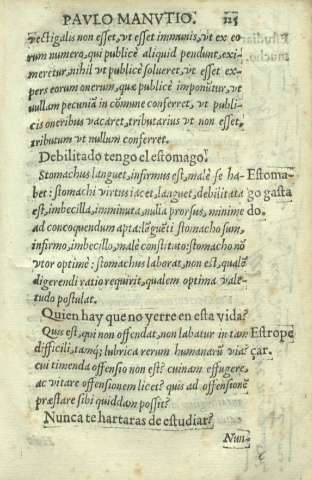 PAVLO MANVTIO. 125
vectigalis non esset, vt esset immunis, vt ex eo
rum numero, qui publicè aliquid pendunt, exi-
meretur, nihil vt publicè solueret, vt esset ex-
pers eorum onerum, quæ publicè imponũtur, vt
nullam pecuniã in cõmune conferret, vt publi-
cis oneribus vacaret, tributarius vt non esset,
tributum vt nullum conferret.
Debilitado tengo el estomago.
Stomachus languet, infirmus est, malè se ha- Estoma-
bet: stomachi virtus iacet, languet, debilitata go gasta
est, imbecilla, imminuta, nulla prorsus, minimè do.
ad concoquendum apta: lãguẽti stomacho sum,
infirmo, imbecillo, malè constitato: stomacho nõ
vtor optimè: stomachus laborat, non est, qualẽ
digerendi ratio requirit, qualem optima vale-
tudo postulat.
Quien hay que no yerre en esta vida?
Quis est, qui non offendat, non labatur in tam Estrope
difficili, tamq; lubrica rerum humanarũ via? çar.
cui timenda offensio non est? cuinam effugere,
ac vitare offensionem licet? quis ad offensionẽ
præstare sibi quiddam possit?
Nunca te hartaras de estudiar?
Nun-